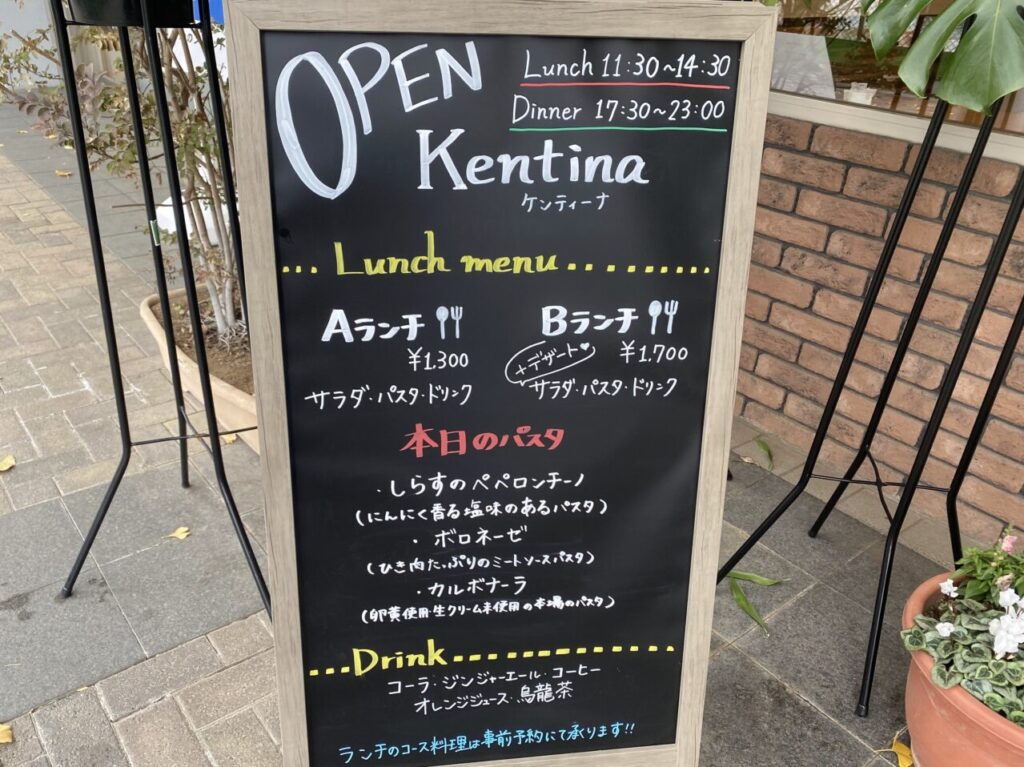 OPEN
Lunch 11:30~14:30
Dinner 17:30~23:00
Kentina
ケンティーナ
... Lunch menu ........
Aランチ
¥1.300
サラダ・パスタ・ドリンク
Bランチ
+デザート♥
¥1.700
サラダ・パスタ・ドリンク
本日のパスタ
・しらすのペペロンチーノ
(にんにく香る塩味のあるパスタ)
・ボロネーゼ
(ひき肉たっぷりのミートソースパスタ)
・カルボナーラ
(卵黄使用・生クリーム未使用の本場のパスタ)
...Drink....................
コーラ・ジンジャーエール・コーヒー
オレンジジュース・烏龍茶
ランチのコース料理は事前予約にて承ります!!